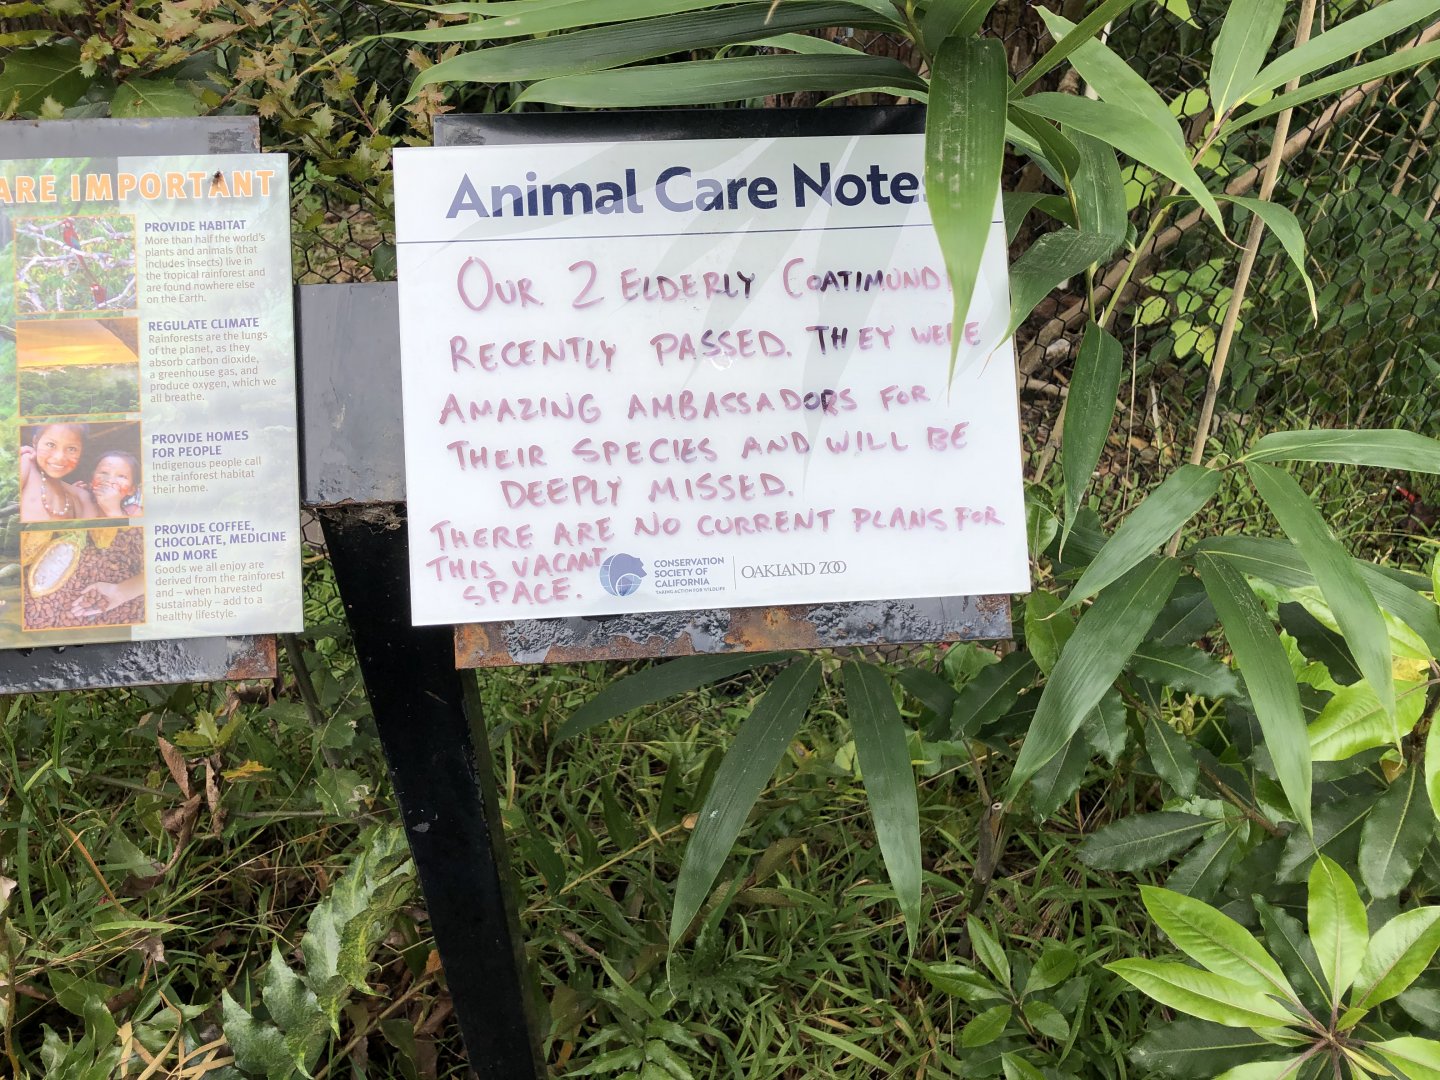 ARE IMPORTANT
PROVIDE HABITAT
More than half the world's
plants and animals (that
includes insects) live in
the tropical rainforest and
are found nowhere else
on the Earth.
REGULATE CLIMATE
Rainforests are the lungs
of the planet, as they
absorb carbon dioxide,
a greenhouse gas, and
produce oxygen, which we
all breathe.
PROVIDE HOMES
FOR PEOPLE
Indigenous people call
the rainforest habitat
their home.
PROVIDE COFFEE,
CHOCOLATE, MEDICINE
AND MORE
Goods we all enjoy are
derived from the rainforest
and – when harvested
sustainably – add to a
healthy lifestyle.
Animal Care Notes
OUR 2 ELDERLY COATIMUNDI
RECENTLY PASSED. THEY WERE
AMAZING AMBASSADORS FOR
THEIR SPECIES AND WILL BE
DEEPLY MISSED.
THERE ARE NO CURRENT PLANS FOR
THIS VACANT
SPACE.
CONSERVATION
SOCIETY OF
CALIFORNIA
TAKING ACTION FOR WILDLIFE
OAKLAND ZOO